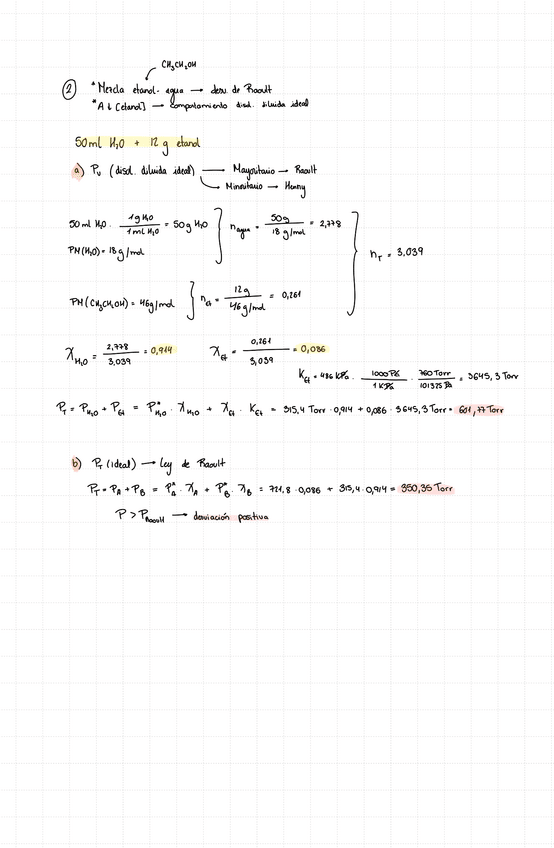 CH₃CH₂OH
② * Mezcla etanol - agua → desv. de Raoult
* A ↓ [etanol] → comportamiento disol. diluida ideal
50 ml H₂O + 12 g etanol
a) Pᵥ (disol. diluida ideal) → Mayoritario → Raoult
→ Minoritario → Henry
50 ml H₂O · 1 g H₂O / 1 ml H₂O = 50 g H₂O
n agua = 50 g / 18 g/mol = 2,778
PM (H₂O) = 18 g/mol
n_T = 3,039
PM (CH₃CH₂OH) = 46 g/mol
n_Et = 12 g / 46 g/mol = 0,261
χ_H₂O = 2,778 / 3,039 = 0,914
χ_Et = 0,261 / 3,039 = 0,086
K_Et = 486 KPa · 1000 Pa / 1 KPa · 760 Torr / 101325 Pa = 3645,3 Torr
P_T = P_H₂O + P_Et = P*_H₂O · χ_H₂O + χ_Et · K_Et = 315,4 Torr · 0,914 + 0,086 · 3645,3 Torr = 601,77 Torr
b) P_T (ideal) → Ley de Raoult
P_T = P_A + P_B = P*_A · χ_A + P*_B · χ_B = 721,8 · 0,086 + 315,4 · 0,914 = 350,35 Torr
P > P_Raoult → desviación positiva